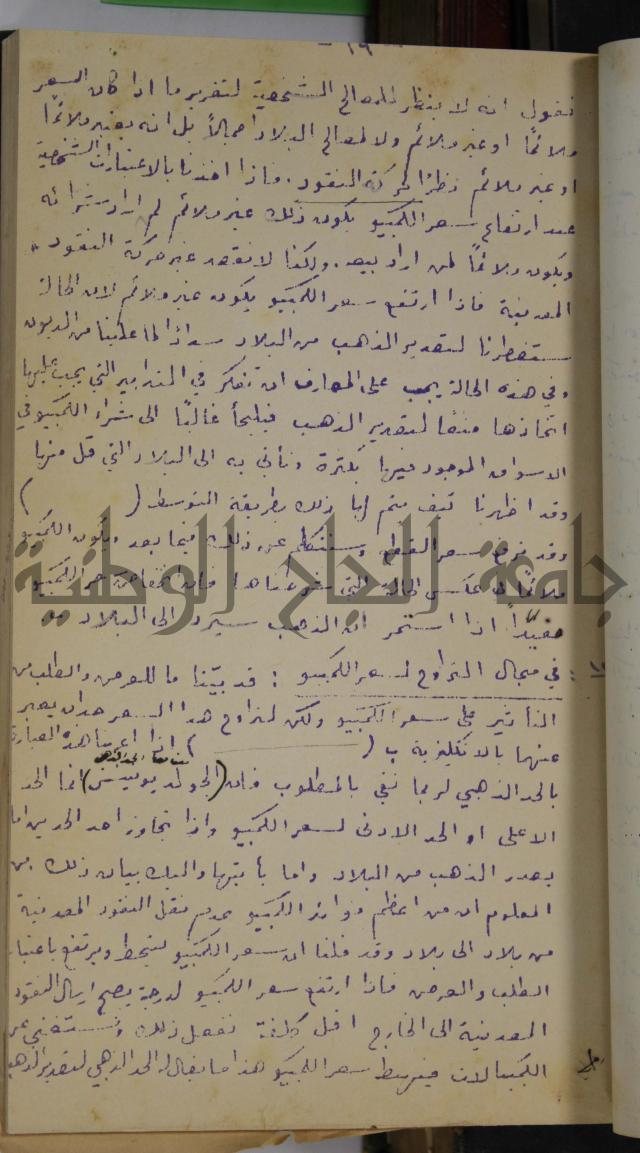 - ١٩ -
نقول انه لا ينظر للمصالح الشخصية لتقرير ما اذا كان السعر
ملائمًا او غير ملائم ولا لمصالح البلاد اجمالاً بل انه يعتبر ملائمًا
او غير ملائم نظرًا لحركة النقود. فاذا اخذنا بالاعتبارات الشخصية
عند ارتفاع سعر الكمبيو يكون ذلك غير ملائم لمن اراد شرائه
ويكون ملائمًا لمن اراد بيعه. ولكننا لا نقصد غير حركة النقود
المعدنية فاذا ارتفع سعر الكمبيو يكون غير ملائم لان الحالة
ستضطرنا لتصدير الذهب من البلاد سدادًا لما علينا من الديون
وفي هذه الحالة يجب على المصارف ان تفكر في التدابير التي يجب عليها
اتخاذها منعًا لتصدير الذهب فيلجأ غالبًا الى شراء الكمبيو في
الاسواق الموجود فيها بكثرة ونأتي به الى البلاد التي قل منها
وقد اظهرنا كيف يتم لها ذلك بطريقة التوسط ( )
وقد نرفع سعر القطع وسنتكلم عن ذلك فيما بعد ويكون الكمبيو
ملائمًا في عكس الحالة التي شرحناها فان انخفاض سعر الكمبيو
مفيدًا اذا استمر ان الذهب سيرد الى البلاد
١٧ : في مجال التراوح لسعر الكمبيو : قد بيّنا ما للعرض والطلب من
التأثير على سعر الكمبيو ولكن لتراوح هذا السعر حدان يعبر
عنهما بالانكليزية ب ( ) اذا اعربنا هذه العبارة
بالحد الذهبي لربما نفي بالمطلوب فان (الجولد بوينتس) انما الحد
الاعلى او الحد الادنى لسعر الكمبيو واذا تجاوز احد الحدين اما
يصدر الذهب من البلاد واما يأتيها واليك بيان ذلك. من
المعلوم ان من اعظم فوائد الكمبيو عدم نقل النقود المعدنية
من بلاد الى بلاد وقد قلنا ان سعر الكمبيو ينحط ويرتفع باعتبار
الطلب والعرض فاذا ارتفع سعر الكمبيو لدرجة يصبح ارسال النقود
المعدنية الى الخارج اقل كلفة نفعل ذلك ونستغني عن
الكمبيالات فيهبط سعر الكمبيو هذا ما يقال له الحد الذهبي لتصدير الذهب
جامعة النجاح الوطنية